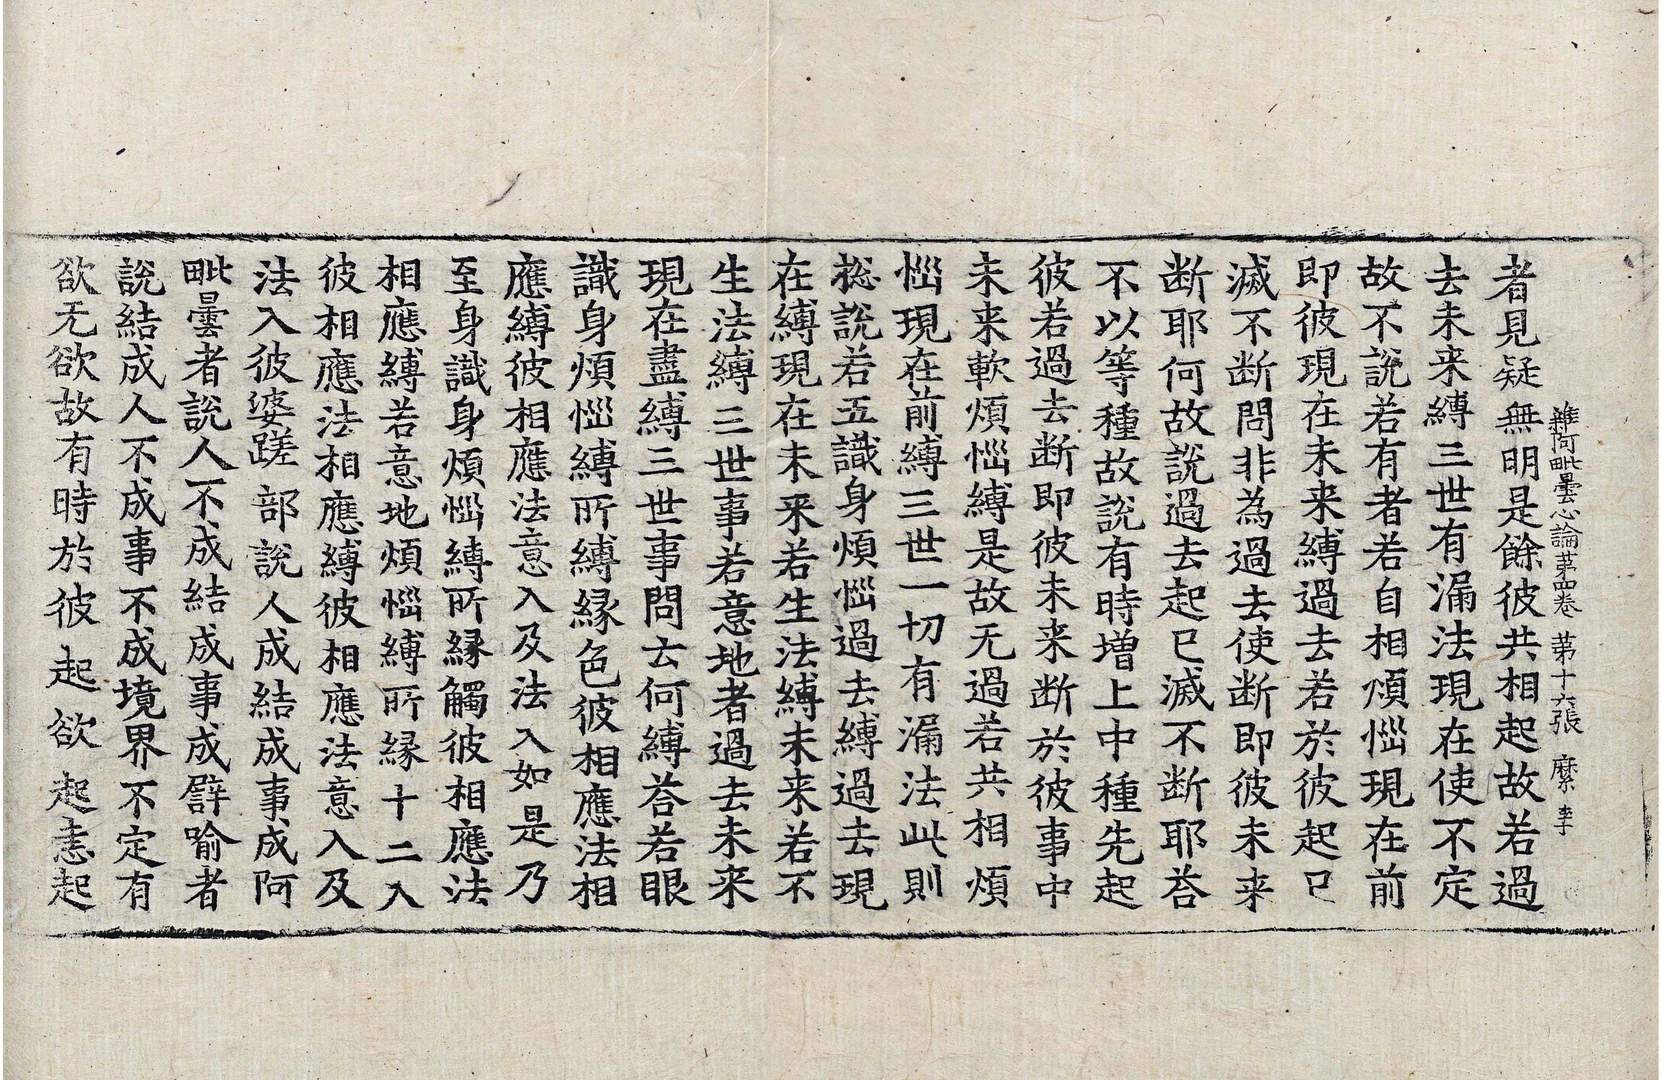 雜阿毗曇心論第四卷 第十六張 縻 李
者見疑無明是餘彼共相起故若過
去未来縛三世有漏法現在使不定
故不說若有者若自相煩惱現在前
即彼現在未来縛過去若於彼起已
滅不断問非為過去使断即彼未来
断耶何故說過去起已滅不断耶荅
不以等種故說有時增上中種先起
彼若過去断即彼未来断於彼事中
未来軟煩惱縛是故无過若共相煩
惱現在前縛三世一切有漏法此則
捴說若五識身煩惱過去縛過去現
在縛現在未来若生法縛未来若不
生法縛三世事若意地者過去未来
現在盡縛三世事問云何縛荅若眼
識身煩惱縛所縛緣色彼相應法相
應縛彼相應法意入及法入如是乃
至身識身煩惱縛所緣觸彼相應法
相應縛若意地煩惱縛所緣十二入
彼相應法相應縛彼相應法意入及
法入彼婆蹉部說人成結成事成阿
毗曇者說人不成結成事成譬喻者
說結成人不成事不成境界不定有
欲无欲故有時於彼起欲起恚起